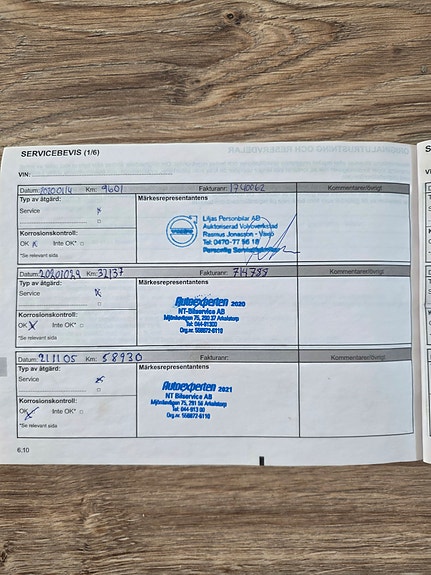 SERVICEBEVIS (1/6)
VIN:
Datum: 20200114 Km: 9601 Fakturanr: 1740062 Kommentarer/övrigt
Typ av åtgärd: Märkesrepresentantens
Service x
Liljas Personbilar AB
Auktoriserad Volvoverkstad
Rasmus Jonasson - Växjö
Tel: 0470-77 56 18
Personlig Servicetekniker
VOLVO
Korrosionskontroll:
OK x Inte OK*
*Se relevant sida
Datum: 20201029 Km: 32137 Fakturanr: 714788 Kommentarer/övrigt
Typ av åtgärd: Märkesrepresentantens
Service x
Autoexperten 2020
NT-Bilservice AB
Tel: 044-91300
Org.nr. 556872-6110
Korrosionskontroll:
OK x Inte OK*
*Se relevant sida
Datum: 211105 Km: 58930 Fakturanr: Kommentarer/övrigt
Typ av åtgärd: Märkesrepresentantens
Service x
Autoexperten 2021
NT Bilservice AB
Tel: 044-913 00
Org.nr. 556872-6110
Korrosionskontroll:
OK x Inte OK*
*Se relevant sida
6.10